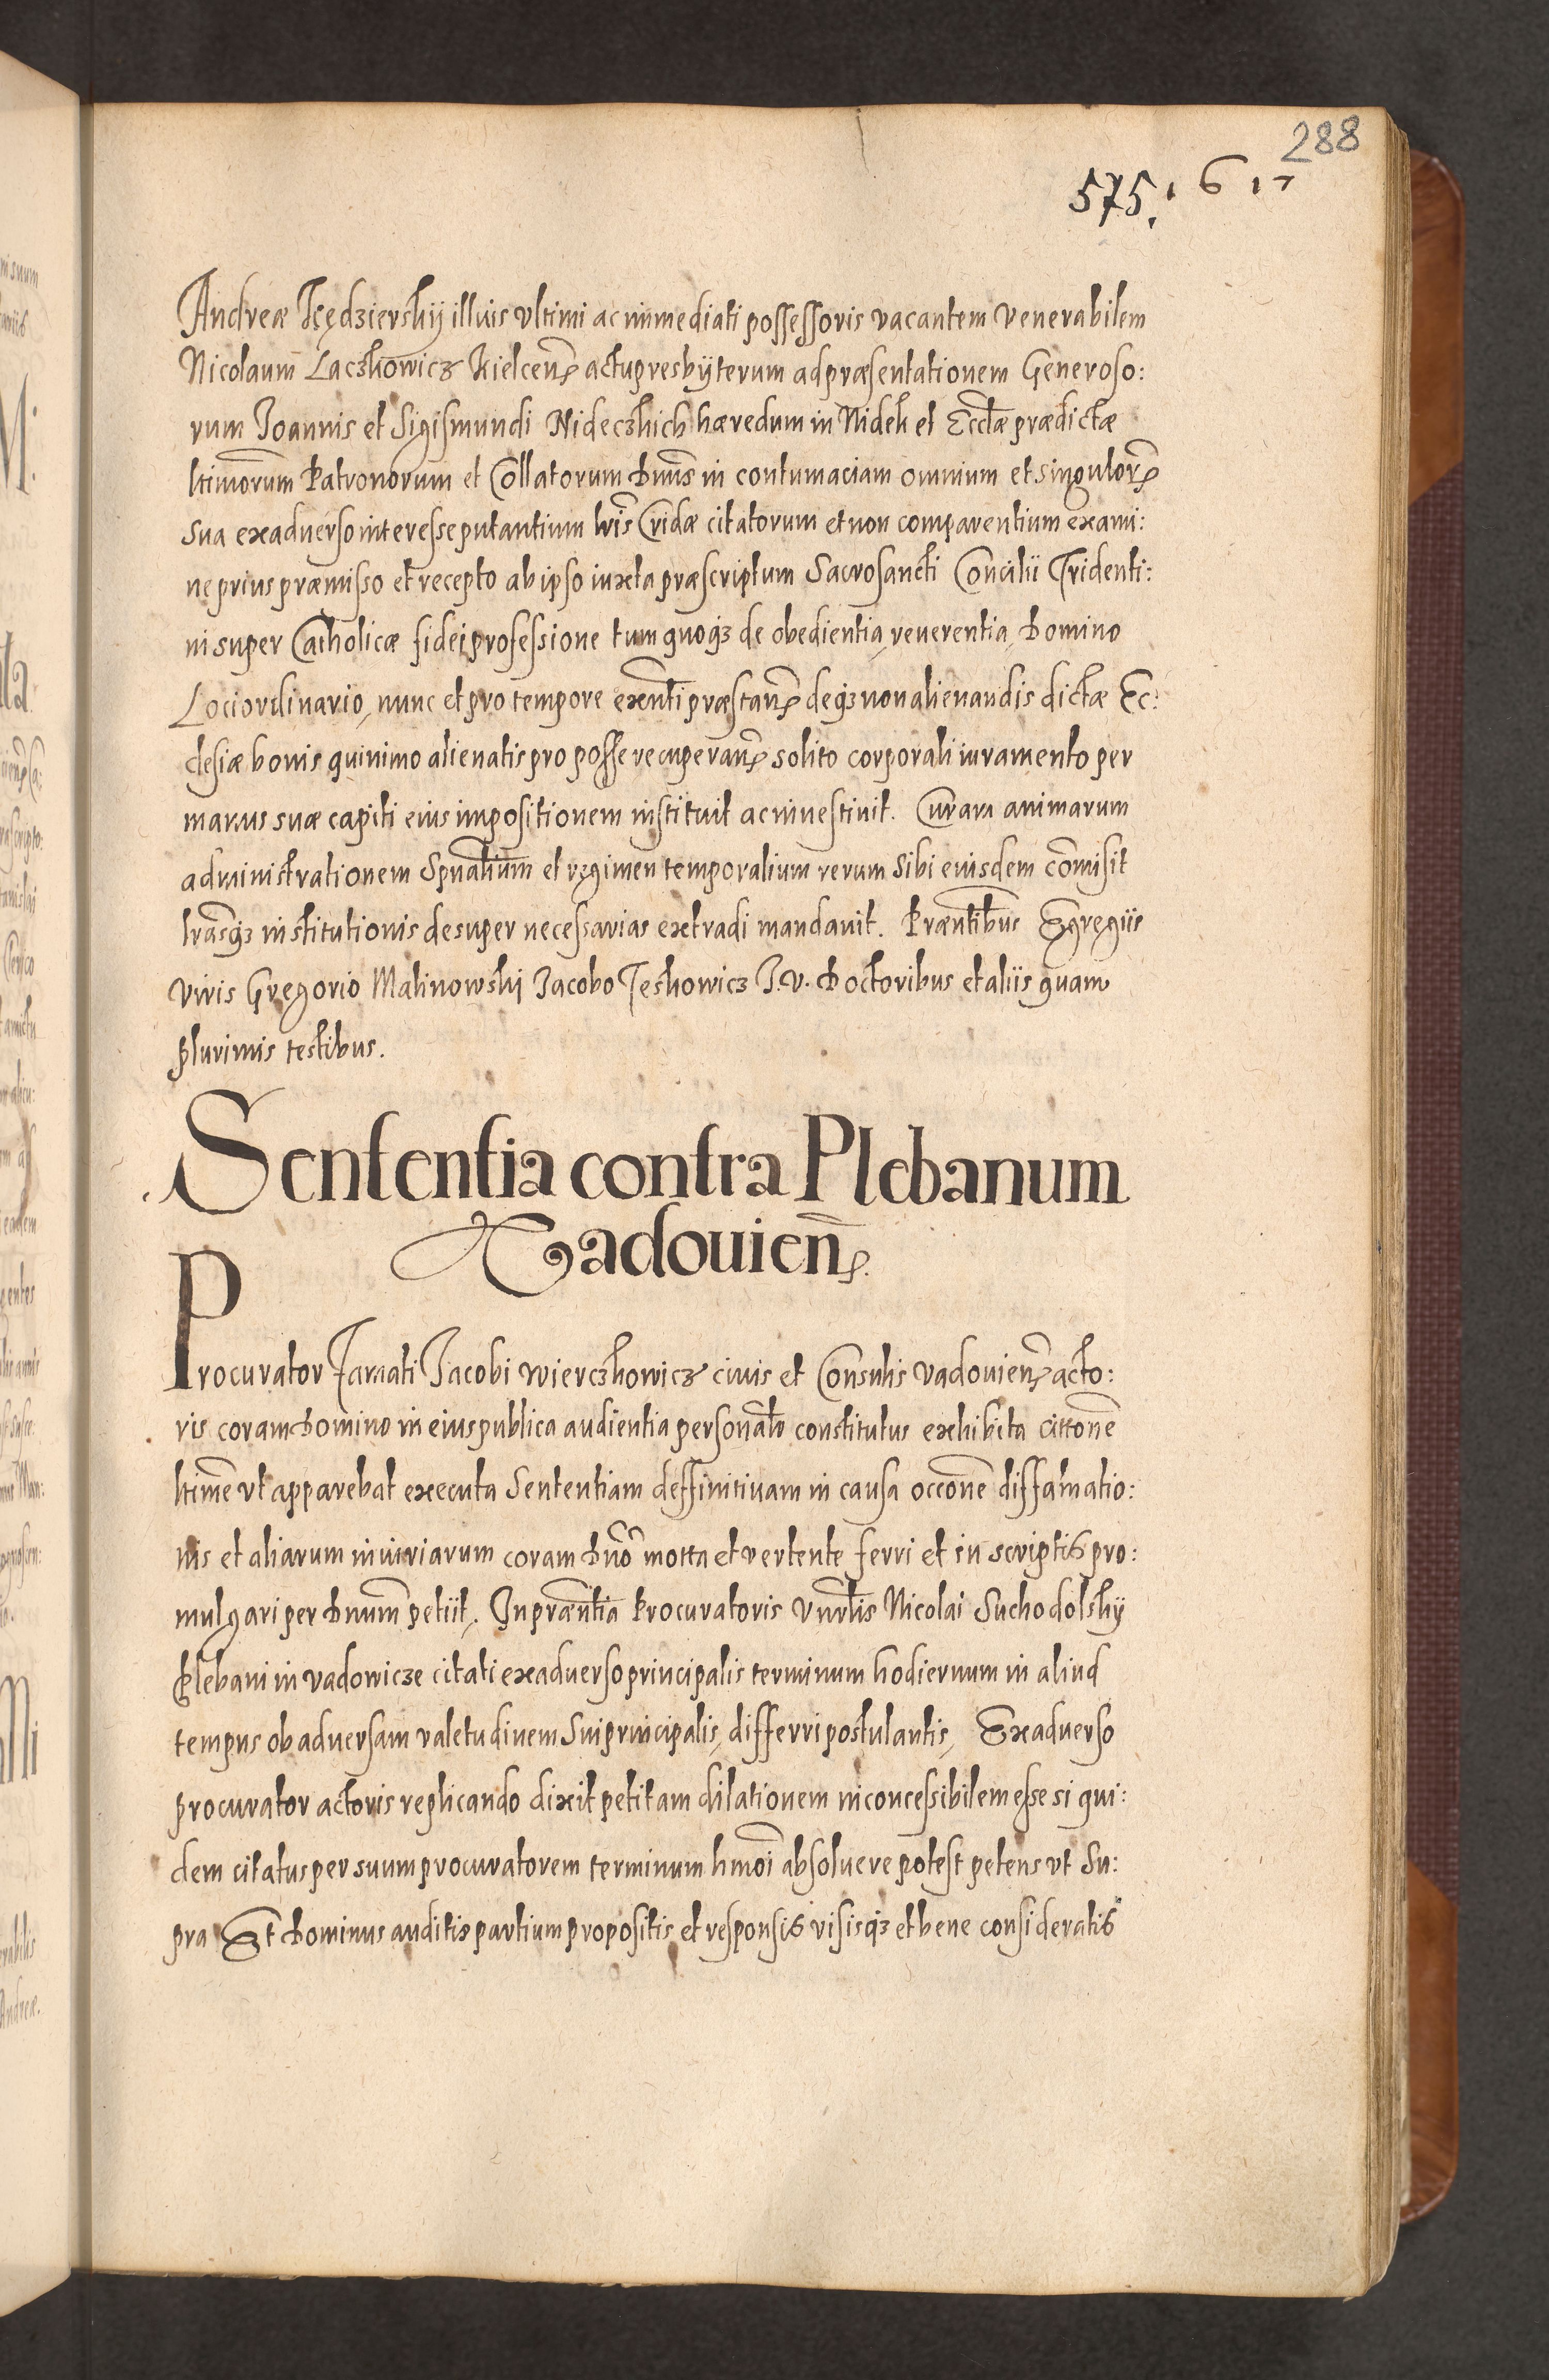 288
575. 1617
Andreæ Kędzierskÿ illius vltimi ac immediati possessoris vacantem venerabilem
Nicolaum Laczkowicz Kielcen̄ actu presbÿterum ad præsentationem Generoso:
rum Joannis et Sigismundi Nideczkich hæredum in Nidek et Eccl̄æ prædictæ
ltimorum̄ Patronorum et Collatorum Dnūs in contumaciam omnium et singulor̄
sua ex adverso interesse putantium lrīs Cridæ citatorum et non comparentium exami:
ne prius præmisso et recepto ab ipso iuxta præscriptum Sacrosancti Concilii Tridenti:
ni super Catholicæ fidei professione tum quoqꝫ de obedientia, reverentia, Domino
Loci ordinario, nunc et pro tempore exn̄ti præstan̄ deqꝫ non alienandis dictæ Ec:
clesiæ bonis quinimo alienatis pro posse recuperan̄ solito corporali iuramento per
manus suæ capiti eius impositionem instituit ac investiuit. Curam animarum
administrationem Spualium̄ et regimen temporalium rerum sibi eiusdem com̄isit
lrāsqꝫ institutionis desuper necessarias extradi mandavit. Præntibus̄ Egregiis
viris Gregorio Malinowski Jacobo Jeskowicz J. V. Doctoribus et aliis quam
plurimis testibus.
Sententia contra Plebanum
Vadouien̄.
Procurator Famati Jacobi Wierczkowicz ciuis et Consulis Vadouien̄ acto:
ris coram Domino in eius publica audientia personal̄r constitutus exhibita citton̄e
ltim̄e vt apparebat executa Sententiam deffinitiuam in causa occon̄e diffamatio:
nis et aliarum iniuriarum coram Dnō mota et vertente ferri et in scriptis pro:
mulgari per Dnum̄ petiit. In præn̄tia Procuratoris Vnrb̄lis Nicolai Suchodolskÿ
Plebani in Vadowicze citati ex aduerso principalis terminum hodiernum in aliud
tempus ob aduersam valetudinem sui principalis, differri postulantis, Ex aduerso
procurator actoris replicando dixit petitam dilationem inconcessibilem esse si qui:
dem citatus per suum procuratorem terminum hmoī absoluere potest petens vt su:
pra Et Dominus auditis partium propositis et responsis visisqꝫ et bene consideratis